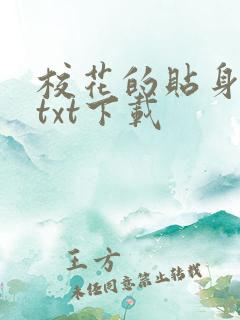 校花的贴身
txt下载
王方
未经同意禁止转载